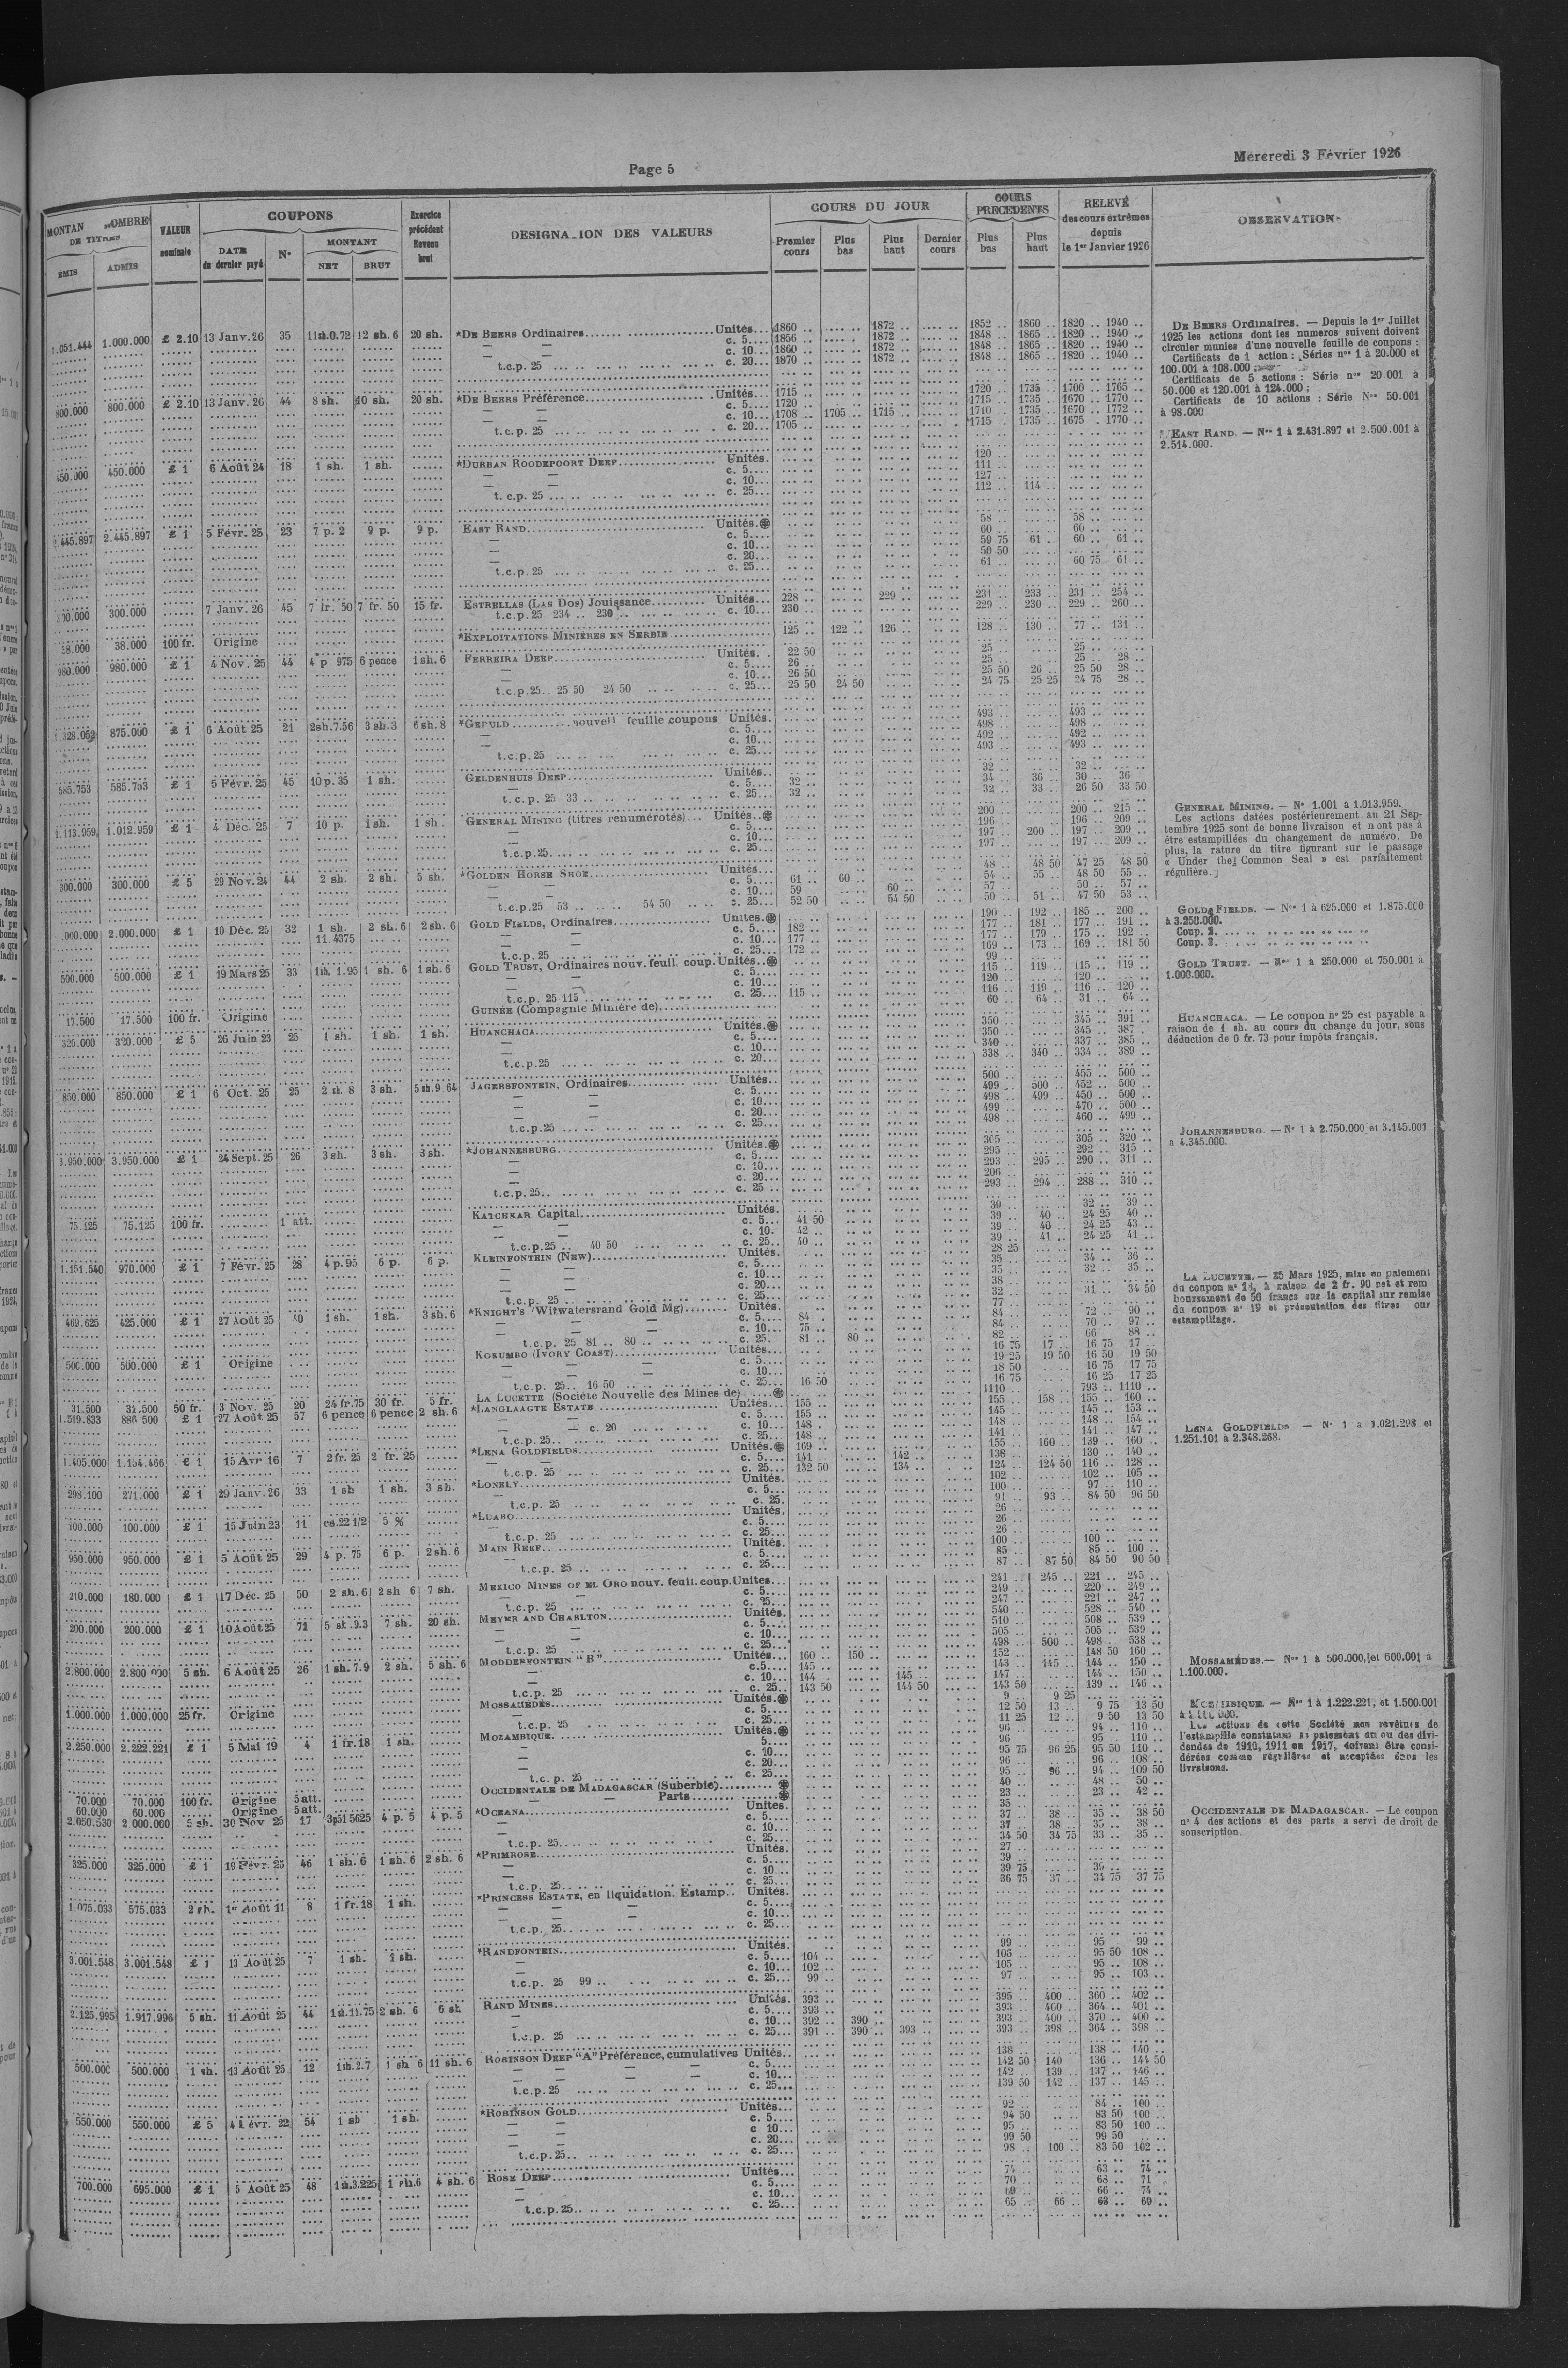 Page 5
Mercredi 3 Février 1926
COUPONS
VALEUR nominale
DATE du dernier payé
N°
MONTANT
NET
BRUT
Exercice précédent Revenu brut
DES VALEURS
COURS DU JOUR
Premier cours
Plus bas
Plus haut
Dernier cours
COURS PRECEDENTS
Plus bas
Plus haut
RELEVÉ des cours extrêmes depuis le 1er Janvier 1926
ÉMIS
ADMIS
1.000.000 £ 2.10 13 Janv. 26 35 12 sh. 6 20 sh. *DE BEERS Ordinaires Unités 1860 1872 1852 1860 1820 1940
c. 5 1856 1872 1848 1865 1820 1940
c. 10 1860 1872 1848 1865 1820 1940
t.c.p. 25 c. 20 1870 1872 1848 1865 1820 1940
800.000 800.000 £ 2.10 13 Janv. 26 44 8 sh. 10 sh. 20 sh. *DE BEERS Préférence Unités 1715 1720 1735 1700 1765
c. 5 1720 1715 1735 1670 1770
c. 10 1708 1705 1715 1710 1735 1670 1772
t.c.p. 25 c. 20 1705 1715 1735 1675 1770
450.000 450.000 £ 1 6 Août 24 18 1 sh. 1 sh. *DURBAN ROODEPOORT DEEP Unités 120
c. 5 111
c. 10 127
t.c.p. 25 c. 25 112 114
2.445.897 £ 1 5 Févr. 25 23 7 p. 2 9 p. 9 p. EAST RAND Unités 58 58
c. 5 60 60
c. 10 59 75 61 60 61
c. 20 50 50
t.c.p. 25 c. 25 61 60 75 61
300.000 7 Janv. 26 45 7 fr. 50 7 fr. 50 15 fr. ESTRELLAS (LAS DOS) Jouissance Unités 228 229 231 233 231 254
t.c.p. 25 234 230 c. 10 230 229 230 229 260
38.000 100 fr. Origine *EXPLOITATIONS MINIÈRES EN SERBIE 125 122 126 128 130 77 131
980.000 £ 1 4 Nov. 25 44 4 p 975 6 pence 1 sh. 6 FERREIRA DEEP Unités 22 50 25 25
c. 5 26 25 25 28
c. 10 26 50 25 50 26 25 50 28
t.c.p. 25 25 50 24 50 c. 25 25 50 24 50 24 75 25 25 24 75 28
875.000 £ 1 6 Août 25 21 2sh.7.56 3 sh. 3 6 sh. 8 *GEDULD feuille coupons Unités 493 493
c. 5 498 498
492 492
t.c.p. 25 c. 25 493 493
585.753 585.753 £ 1 5 Févr. 25 45 10 p. 35 1 sh. GELDENHUIS DEEP Unités 32 32
c. 5 32 34 36 30 36
t.c.p. 25 33 c. 25 32 32 33 26 50 33 50
1.113.959 1.012.959 £ 1 4 Déc. 25 7 10 p. 1 sh. 1 sh. GENERAL MINING (titres renumérotés) Unités 200 200 215
c. 5 196 196 209
c. 10 197 200 197 209
t.c.p. 25 c. 25 197 197 209
300.000 300.000 £ 5 29 Nov. 24 44 2 sh. 2 sh. 5 sh. *GOLDEN HORSE SHOE 48 48 50 47 25 48 50
c. 5 61 60 54 55 48 50 55
c. 10 59 60 57 50 57
t.c.p. 25 53 54 50 c. 25 52 50 54 50 50 51 47 50 53
2.000.000 £ 1 10 Déc. 25 32 1 sh. 11.4375 2 sh. 6 2 sh. 6 GOLD FIELDS, Ordinaires Unités 190 192 185 200
c. 5 182 177 181 177 191
c. 10 177 177 179 175 192
t.c.p. 25 c. 25 172 169 173 169 181 50
500.000 500.000 £ 1 19 Mars 25 33 1 sh. 1.95 1 sh. 6 1 sh. 6 GOLD TRUST, Ordinaires nouv. feuil. coup. Unités 99
c. 5 115 119 115 119
c. 10 120 120
t.c.p. 25 115 c. 25 115 116 119 116 120
17.500 17.500 100 fr. Origine GUINÉE (Compagnie Minière de) 60 64 31 64
320.000 320.000 £ 5 26 Juin 23 25 1 sh. 1 sh. 1 sh. HUANCHACA Unités 350 345 391
c. 5 350 345 387
c. 10 340 337 385
t.c.p. 25 c. 20 338 340 334 389
850.000 850.000 £ 1 6 Oct. 25 25 2 sh. 8 3 sh. 5 sh. 9 64 JAGERSFONTEIN, Ordinaires Unités 500 455 500
c. 5 499 500 452 500
c. 10 498 499 450 500
c. 20 499 470 500
t.c.p. 25 c. 25 498 460 499
3.950.000 3.950.000 £ 1 24 Sept. 25 26 3 sh. 3 sh. 3 sh. *JOHANNESBURG Unités 305 305 320
c. 5 295 292 315
c. 10 293 295 290 311
c. 20 206
t.c.p. 25 c. 25 293 294 288 310
75.125 75.125 100 fr. 1 att. KATCHKAR Capital Unités 39 32 39
c. 5 41 50 39 40 24 25 40
c. 10 42 39 40 24 25 43
t.c.p. 25 40 50 c. 25 40 39 41 24 25 41
1.151.540 970.000 £ 1 7 Févr. 25 28 4 p. 95 6 p. 6 p. KLEINFONTEIN (NEW) Unités 28 25
c. 5 35 34 36
c. 10 35 32 35
c. 20 38
t.c.p. 25 c. 25 32 31 34 50
469.625 425.000 £ 1 27 Août 25 40 1 sh. 1 sh. 3 sh. 6 *KNIGHT'S (Witwatersrand Gold Mg) Unités 77
c. 5 84 84 72 90
c. 10 75 84 70 97
t.c.p. 25 81 80 c. 25 81 80 82 66 88
500.000 500.000 £ 1 Origine KOKUMBO (IVORY COAST) Unités 16 75 17 16 75 17
c. 5 19 25 19 50 16 50 19 50
c. 10 18 50 16 75 17 75
t.c.p. 25 16 50 c. 25 16 50 16 75 16 25 17 25
31.500 31.500 50 fr. 3 Nov. 25 20 24 fr. 75 30 fr. 5 fr. LA LUCETTE (Société Nouvelle des Mines de) 1110 793 1110
1.519.833 886 500 £ 1 27 Août 25 57 6 pence 6 pence 2 sh. 6 *LANGLAAGTE ESTATE Unités 155 155 158 155 160
c. 5 155 145 145 153
c. 20 c. 10 148 148 148 154
t.c.p. 25 c. 25 148 141 141 147
1.405.000 1.154.466 £ 1 15 Avr 16 7 2 fr. 25 2 fr. 25 *LENA GOLDFIELDS Unités 169 155 160 139 160
c. 5 141 142 138 130 140
t.c.p. 25 c. 25 132 50 134 124 124 50 116 128
298.100 271.000 £ 1 29 Janv. 26 33 1 sh 1 sh. 3 sh. *LONELY Unités 102 102 105
c. 5 100 97 110
t.c.p. 25 c. 25 91 93 84 50 96 50
100.000 100.000 £ 1 15 Juin 23 11 es.22 1/2 5 % *LUABO Unités 26
c. 5 26
t.c.p. 25 c. 25 26
950.000 950.000 £ 1 5 Août 25 29 4 p. 75 6 p. 2 sh. 6 MAIN REEF Unités 100 100
c. 5 85 85 100
t.c.p. 25 c. 25 87 87 50 84 50 90 50
210.000 180.000 £ 1 17 Déc. 25 50 2 sh. 6 2 sh 6 7 sh. MEXICO MINES OF EL ORO nouv. feuil. coup. Unites 241 245 221 245
c. 5 249 220 249
t.c.p. 25 c. 25 247 221 247
200.000 200.000 £ 1 10 Août 25 71 5 sh .9.3 7 sh. 20 sh. MEYER AND CHARLTON Unités 540 528 540
c. 5 510 508 539
c. 10 505 505 539
t.c.p. 25 c. 25 498 500 498 538
2.800.000 5 sh. 6 Août 25 26 1 sh. 7.9 2 sh. 5 sh. 6 MODDERFONTEIN "B" Unités 160 150 152 148 50 160
c. 5 145 143 145 144 150
c. 10 144 145 147 144 150
t.c.p. 25 c. 25 143 50 144 50 143 50 139 146
1.000.000 1.000.000 25 fr. Origine MOSSAMÉDÈS Unités 9 9 25
c. 5 12 50 13 9 75 13 50
t.c.p. 25 c. 25 11 25 12 9 50 13 50
2.250.000 2.222.221 £ 1 5 Mai 19 4 1 fr. 18 1 sh. MOZAMBIQUE Unités 96 94 110
5 96 95 110
c. 10 95 75 96 25 95 50 110
c. 20 96 96 108
t.c.p. 25 c. 25 95 96 94 109 50
70.000 70.000 100 fr. Origine 5 att. OCCIDENTALE DE MADAGASCAR (Suberbie) 40 48 50
60.000 60.000 Origine 5 att. Parts 23 23 42
2.000.000 5 sh. 30 Nov 25 17 4 p. 5 4 p. 5 *OCEANA Unites 35
c. 5 37 38 35 38 50
c. 10 37 38 35 38
t.c.p. 25 c. 25 34 50 34 75 33 35
325.000 325.000 £ 1 46 1 sh. 6 1 sh. 6 2 sh. 6 *PRIMROSE Unités 27
c. 5 39
c. 10 39 75 39
t.c.p. 25 c. 25 36 75 37 34 75 37 75
1.075.033 575.033 2 sh. 1er Août 11 8 1 fr. 18 1 sh. *PRINCESS ESTATE, en liquidation. Estamp. Unités
c. 5
c. 10
t.c.p. 25 c. 25
3.001.548 3.001.548 £ 1 13 Août 25 7 1 sh. 1 sh. *RANDFONTEIN Unités 99 95 99
c. 5 104 95 50 108
c. 10 102 105 95 108
t.c.p. 25 99 c. 25 99 97 95 103
2.125.995 1.917.996 5 sh. 11 Août 25 44 1 sh.11.75 2 sh. 6 6 sh RAND MINES Unités 393 395 400 360 402
c. 5 393 393 400 364 401
c. 10 392 390 393 400 370 400
t.c.p. 25 c. 25 391 390 393 393 398 364 398
500.000 500.000 1 sh. 13 Août 25 12 1 sh.2.7 1 sh 6 11 sh. 6 ROBINSON DEEP "A" Préférence, cumulatives Unités 138 138 140
c. 5 142 50 140 136 144 50
c. 10 142 139 137 146
t.c.p. 25 c. 25 139 50 142 137 145
550.000 550.000 £ 5 54 1 sh 1 sh. *ROBINSON GOLD Unités 92 84 100
c. 5 94 50 83 50 100
c 10 95 83 50 100
c. 20 99 50 99 50
t.c.p. 25 c. 25 98 100 83 50 102
700.000 695.000 £ 1 5 Août 25 48 1 sh.3.225 1 sh.6 4 sh. 6 ROSE DEEP Unités 74 63 74
c. 5 70 68 71
c. 10 69 66 74
t.c.p. 25 c. 25 65 66 60
DE BEERS Ordinaires. — Depuis le 1er Juillet
1925 les actions dont les numeros suivent doivent
circuler munies d'une nouvelle feuille de coupons :
Certificats de 1 action : Séries nos 1 à 20.000 et
100.001 à 108.000 ;
Certificats de 5 actions : Série nos 20 001 à
50.000 et 120.001 à 124.000 ;
Certificats de 10 actions : Série Nos 50.001
à 98.000
EAST RAND. — Nos 1 à 2.431.897 et 2.500.001 à
2.514.000.
GENERAL MINING. — N° 1.001 à 1.013.959.
Les actions datées postérieurement au 21 Sep-
tembre 1925 sont de bonne livraison et n ont pas à
être estampillées du changement de numéro. De
plus, la rature du titre figurant sur le passage
« Under the Common Seal » est parfaitement
régulière.
GOLD FIELDS. — Nos 1 à 625.000 et 1.875.000
à 3.250.000.
Coup. 2.
Coup. 3.
GOLD TRUST. — Nos 1 à 250.000 et 750.001 à
1.000.000.
HUANCHACA. — Le coupon n° 25 est payable a
raison de 1 sh. au cours du change du jour, sous
déduction de 0 fr. 73 pour impôts français.
JOHANNESBURG. — N° 1 à 2.750.000 et 3.145.001
a 4.345.000.
LA LUCETTE. — 25 Mars 1925, mise en paiement
du coupon n° 18, à raison de 2 fr. 90 net et rem
boursement de 50 francs sur le capital sur remise
du coupon n° 19 et présentation des titres our
estampillage.
LENA GOLDFIELDS — N° 1 a 1.021.298 et
1.251.101 à 2.348.268.
MOSSAMÉDÈS. — Nos 1 à 500.000, et 600.001 à
1.100.000.
— Nos 1 à 1.222.221, et 1.500.001
Les actions de cette Société non revêtues de
l'estampille constatant le paiement du ou des divi-
dendes de 1910, 1911 ou 1917, doivent être consi-
dérées comme régulières et acceptées dans les
livraisons.
OCCIDENTALE DE MADAGASCAR. — Le coupon
n° 4 des actions et des parts a servi de droit de
souscription.